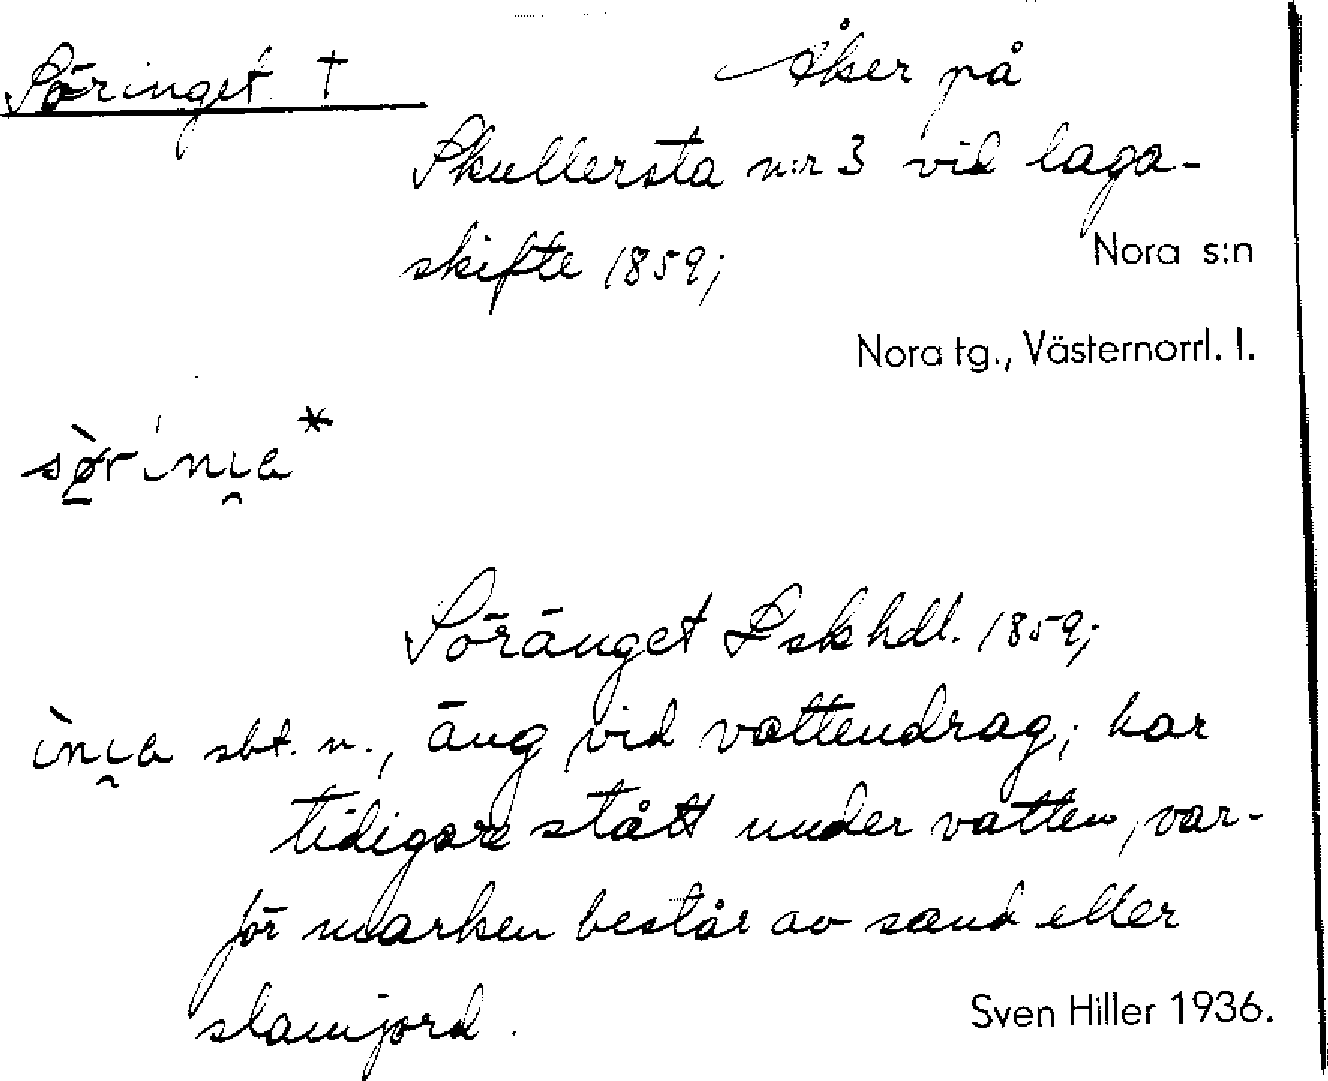 Söringet †
Åker på
Skullersta n:r 3 vid laga-
skifte 1859;
Nora s:n
Nora tg., Västernorrl. l.
Söränget Lskhdl. 1859;
sbt. n., äng vid vattendrag; har
tidigare stått under vatten, var-
för marken består av sand eller
slamjord.
Sven Hiller 1936.